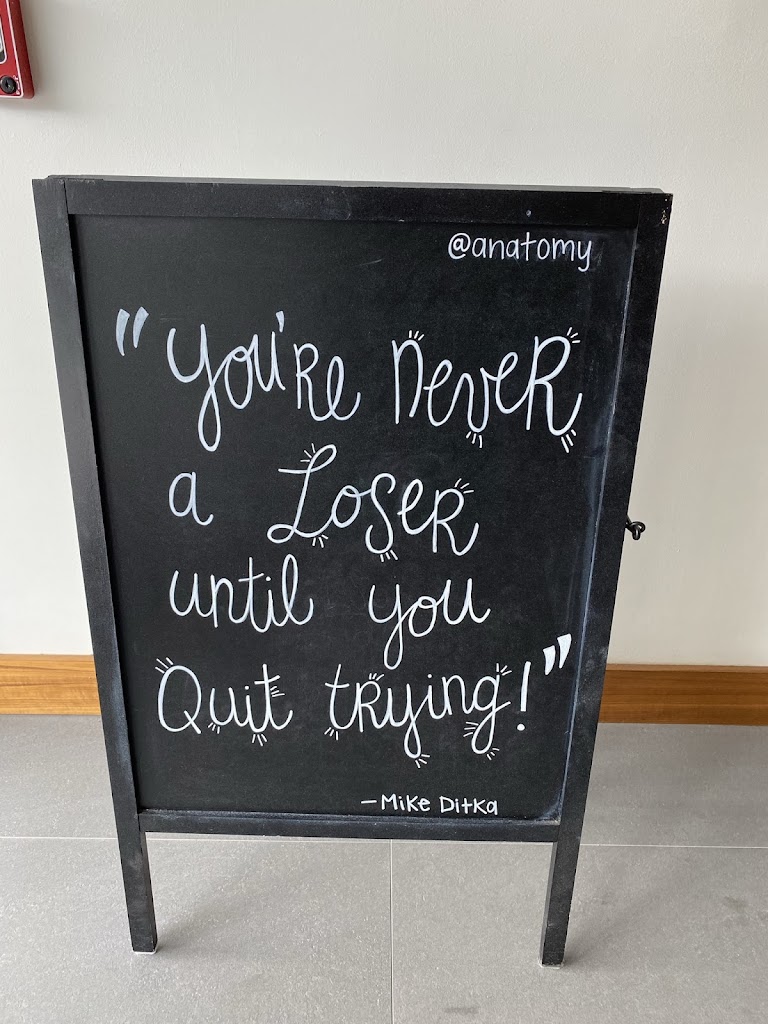 @anatomy
"You're never
a Loser
until you
Quit trying!"
-Mike Ditka